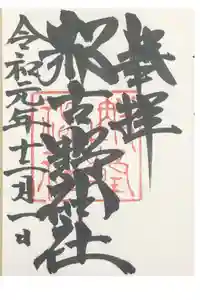 奉拝
那古野神社
令和元年十一月一日